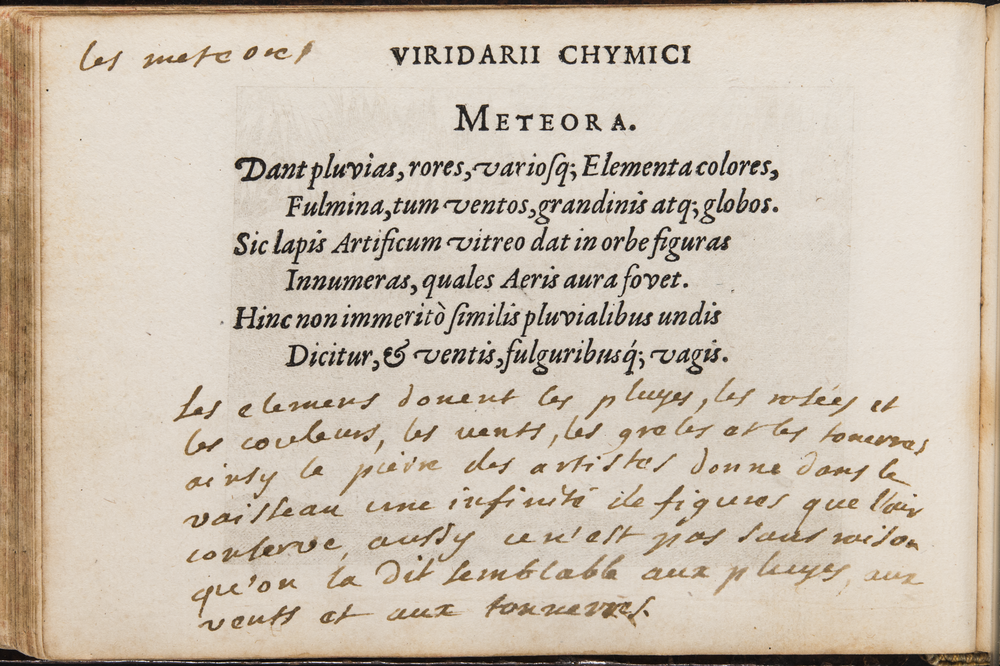 les meteores
VIRIDARII CHYMICI
METEORA.
Dant pluvias, rores, varioſq; Elementa colores,
Fulmina, tum ventos, grandinis atq; globos.
Sic lapis Artificum vitreo dat in orbe figuras
Innumeras, quales Aeris aura fovet.
Hinc non immeritò ſimilis pluvialibus undis
Dicitur, & ventis, fulguribusq́; vagis.
Les elemens donent les pluyes, les rosées et
les couleurs, les vents, les greles et les tonerres
ainsy la pierre des artistes donne dans le
vaisseau une infinité de figures que l'air
conserve, aussy ce n'est pas sans raison
qu'on la dit semblable aux pluyes, aux
vents et aux tonnerres.